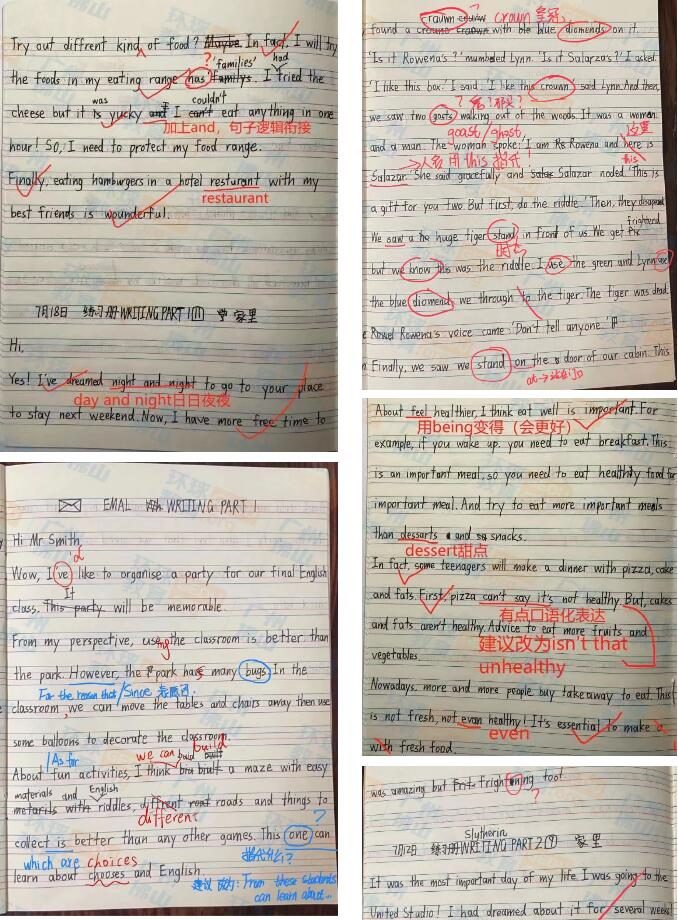 Try out diffrent kind of food? Maybe. In fact, I will try
?
'families' had
the foods in my eating range has familys. I tried the
was couldn't
cheese but it is yucky and I can't eat anything in one
加上and，句子逻辑衔接
hour! So, I need to protect my food range.
Finally, eating hamburgers in a hotel resturant with my
restaurant
best friends is wounderful.
7月18日 练习册WRITING PART 1 家里
Hi,
Yes! I've dreamed night and night to go to your place
day and night日日夜夜
to stay next weekend. Now, I have more free time to
EMAL WRITING PART 1
Hi Mr Smith,
'd
Wow, I've like to organise a party for our final English
It
class. This party will be memorable.
From my perspective, using the classroom is better than
the park. However, the park has many bugs. In the
For the reason that/Since
classroom, we can move the tables and chairs away then use
some balloons to decorate the classroom.
/As for we can build
About fun activities, I think built a maze with easy
materials and English
metarils with riddles, diffrent roads and things to
different ?
collect is better than any other games. This one can
which are choices 指代什么？
learn about chooses and English
建议改为: From these students
can learn about...
crown crown 皇冠
found a crown with ble blue diomends on it.
'Is it Rowena's?' mumbled Lynn. 'Is it Salarza's?' I asked.
'I like this box.' I said. 'I like this crown' said Lynn. And then,
we saw two gosts walking out of the woods. It was a woman
goast/ghost
and a man. The woman spoke: 'I am Rowena and here is
这里 this
→人多用this指示！
Salazar.' She said gracefully and Salazar noded. 'This is
a gift for you two. But first, do the riddle.' Then, they disapeared
frightend
We saw a huge tiger stand in front of us. We get
时态
but we know this was the riddle. I use the green and Lynn use
the blue diomend, we through to the tiger. The tiger was dead.
Rowena's voice came. 'Don't tell anyone.'
Finally, we saw we stand on the door of our cabin. This
About feel healthier, I think eat well is important. For
用being变得（会更好）
example, if you wake up, you need to eat breakfast. This
is an important meal, so you need to eat healthiy food for
important meal. And try to eat more important meals
than dessarts and snacks.
dessert甜点
In fact, some teenagers will make a dinner with pizza, cake
and fats. First, pizza can't say it's not healthy. But, cakes
有点口语化表达
and fats aren't healthy. Advice to eat more fruits and
建议改为isn't that
unhealthy
vegetables.
Nowadays, more and more people buy takeaway to eat. This
is not fresh, not evan healthy! It's essential to make a
even
with fresh food.
was amazing but frightening too!
?
Slytherin
7月12日 练习册WRITING PART 2 家里
It was the most important day of my life. I was going to the
United Studio! I had dreamed about it for several weeks